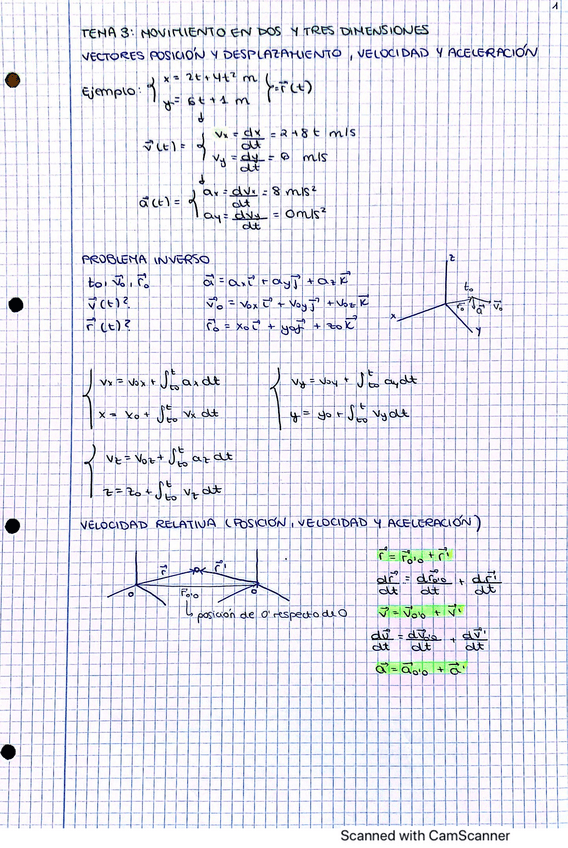 1
TEMA 3: MOVIMIENTO EN DOS Y TRES DIMENSIONES
VECTORES POSICIÓN Y DESPLAZAMIENTO, VELOCIDAD Y ACELERACIÓN
Ejemplo: { x = 2t + 4t² m
y = 6t + 1 m } = r⃗(t)
v⃗(t) = { vx = dx/dt = 2 + 8t m/s
vy = dy/dt = 6 m/s
a⃗(t) = { ax = dvx/dt = 8 m/s²
ay = dvy/dt = 0 m/s²
PROBLEMA INVERSO
t₀, v⃗₀, r⃗₀ a⃗ = axi⃗ + ayj⃗ + azk⃗
v⃗(t)? v⃗₀ = v₀xi⃗ + v₀yj⃗ + v₀zk⃗
r⃗(t)? r⃗₀ = x₀i⃗ + y₀j⃗ + z₀k⃗
z
t₀
r⃗₀ a⃗ v⃗₀
x
y
{ vx = v₀x + ∫t₀^t ax dt { vy = v₀y + ∫t₀^t ay dt
x = x₀ + ∫t₀^t vx dt y = y₀ + ∫t₀^t vy dt
{ vz = v₀z + ∫t₀^t az dt
z = z₀ + ∫t₀^t vz dt
VELOCIDAD RELATIVA (POSICIÓN, VELOCIDAD Y ACELERACIÓN)
r⃗ r⃗'
O r⃗o'o O'
posición de O' respecto de O
r⃗ = r⃗o'o + r⃗'
dr⃗/dt = dr⃗o'o/dt + dr⃗'/dt
v⃗ = v⃗o'o + v⃗'
dv⃗/dt = dv⃗o'o/dt + dv⃗'/dt
a⃗ = a⃗o'o + a⃗'
Scanned with CamScanner